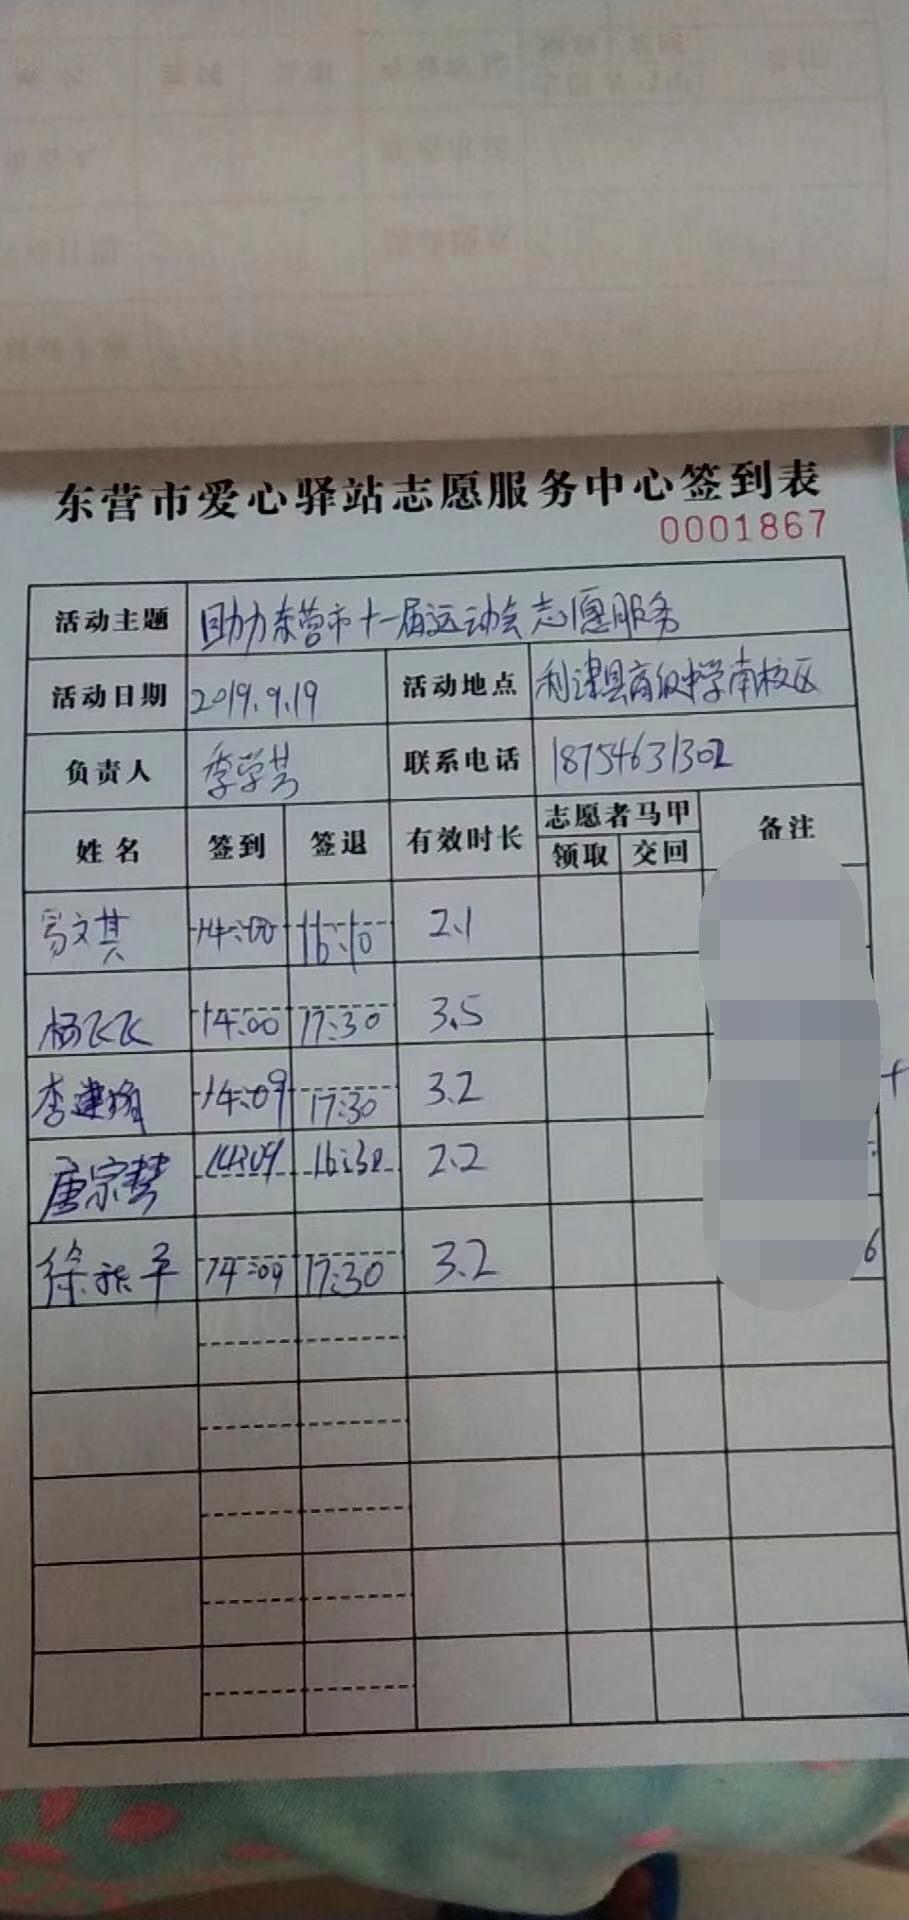 东营市爱心驿站志愿服务中心签到表
0001867
活动主题 助力东营市十一届运动会志愿服务
活动日期 2019.9.19 活动地点 利津县高级中学南校区
负责人 季学芸 联系电话 18754631302
姓名 签到 签退 有效时长 志愿者马甲 备注
领取 交回
易文其 14:00 16:10 2.1
杨飞飞 14:00 17:30 3.5
李建 14:09 17:30 3.2
唐宗梦 14:09 16:30 2.2
徐 平 14:09 17:30 3.2
6